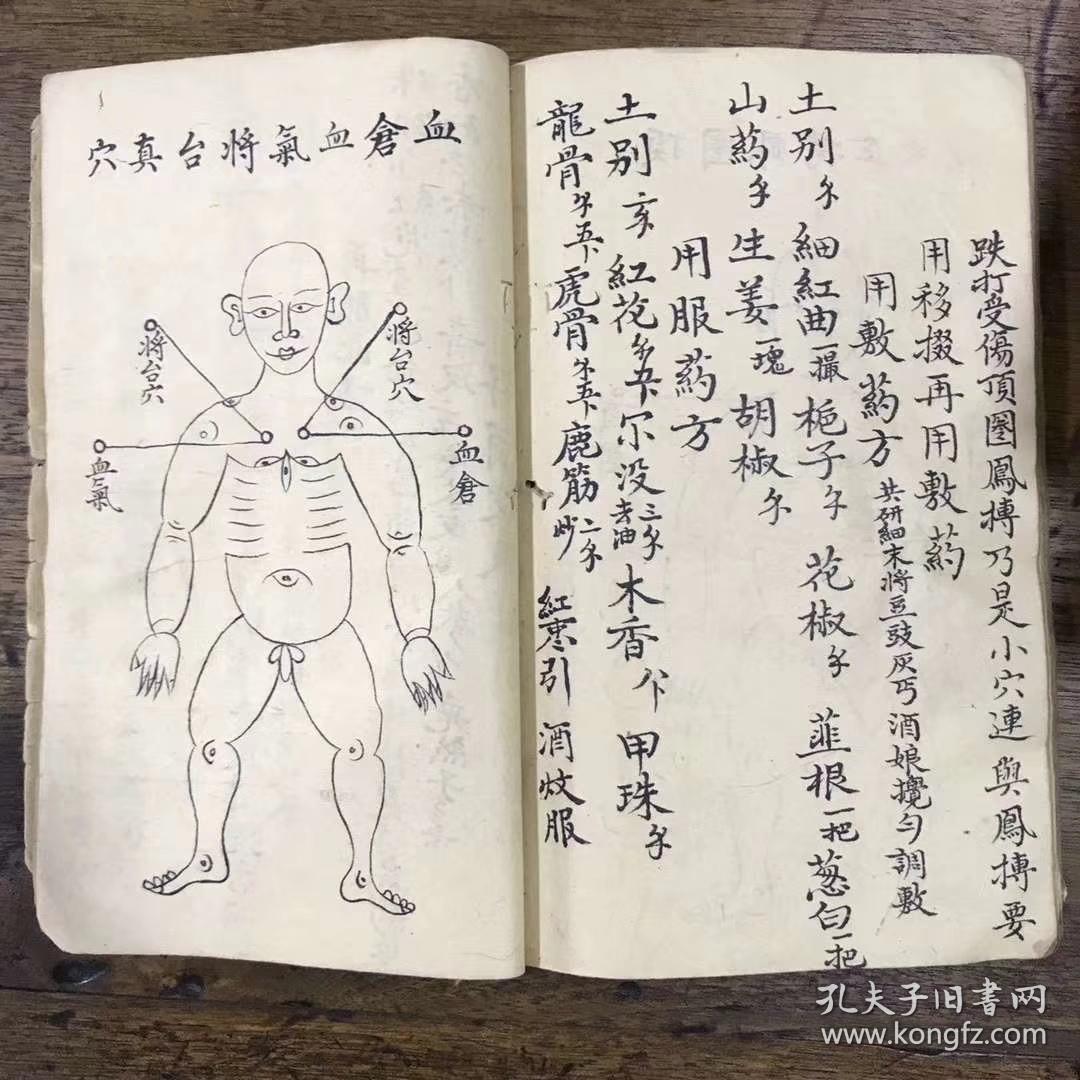 跌打受傷頂圈鳳搏乃是小穴連與鳳搏要
用移掇再用敷葯
用敷葯方 共研細末將豆豉灰丐酒娘攪勻調敷
土别 細紅曲一撮 栀子 花椒 韮根一把 葱白一把
山葯 生姜一塊 胡椒
用服葯方
土别 紅花 尔没三 去油 木香 甲珠
龍骨 虎骨 鹿筋二 炒 紅棗引 酒炆服
血倉血氣將台真穴
将台穴
将台穴
血倉
血氣
孔夫子旧书网
www.kongfz.com